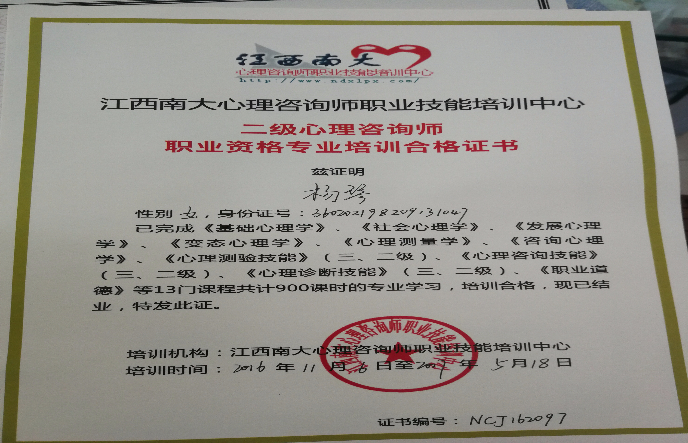 江西南大
心理咨询师职业技能培训中心
http://www.ndxlpx.com
江西南大心理咨询师职业技能培训中心
二级心理咨询师
职业资格专业培训合格证书
兹证明
性别 女，身份证号：360202198209131047
已完成《基础心理学》、《社会心理学》、《发展心理
学》、《变态心理学》、《心理测量学》、《咨询心理
学》、《心理测验技能》（三、二级）、《心理咨询技能》
（三、二级）、《心理诊断技能》（三、二级）、《职业道
德》等13门课程共计900课时的专业学习，培训合格，现已结
业，特发此证。
培训机构：江西南大心理咨询师职业技能培训中心
培训时间：2016 年 11 月 日至 年 5 月 18 日
证书编号：NCJ162097